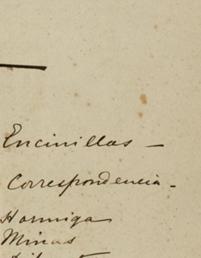 Encinillas —
Correspondencia -
Hormiga
Minas